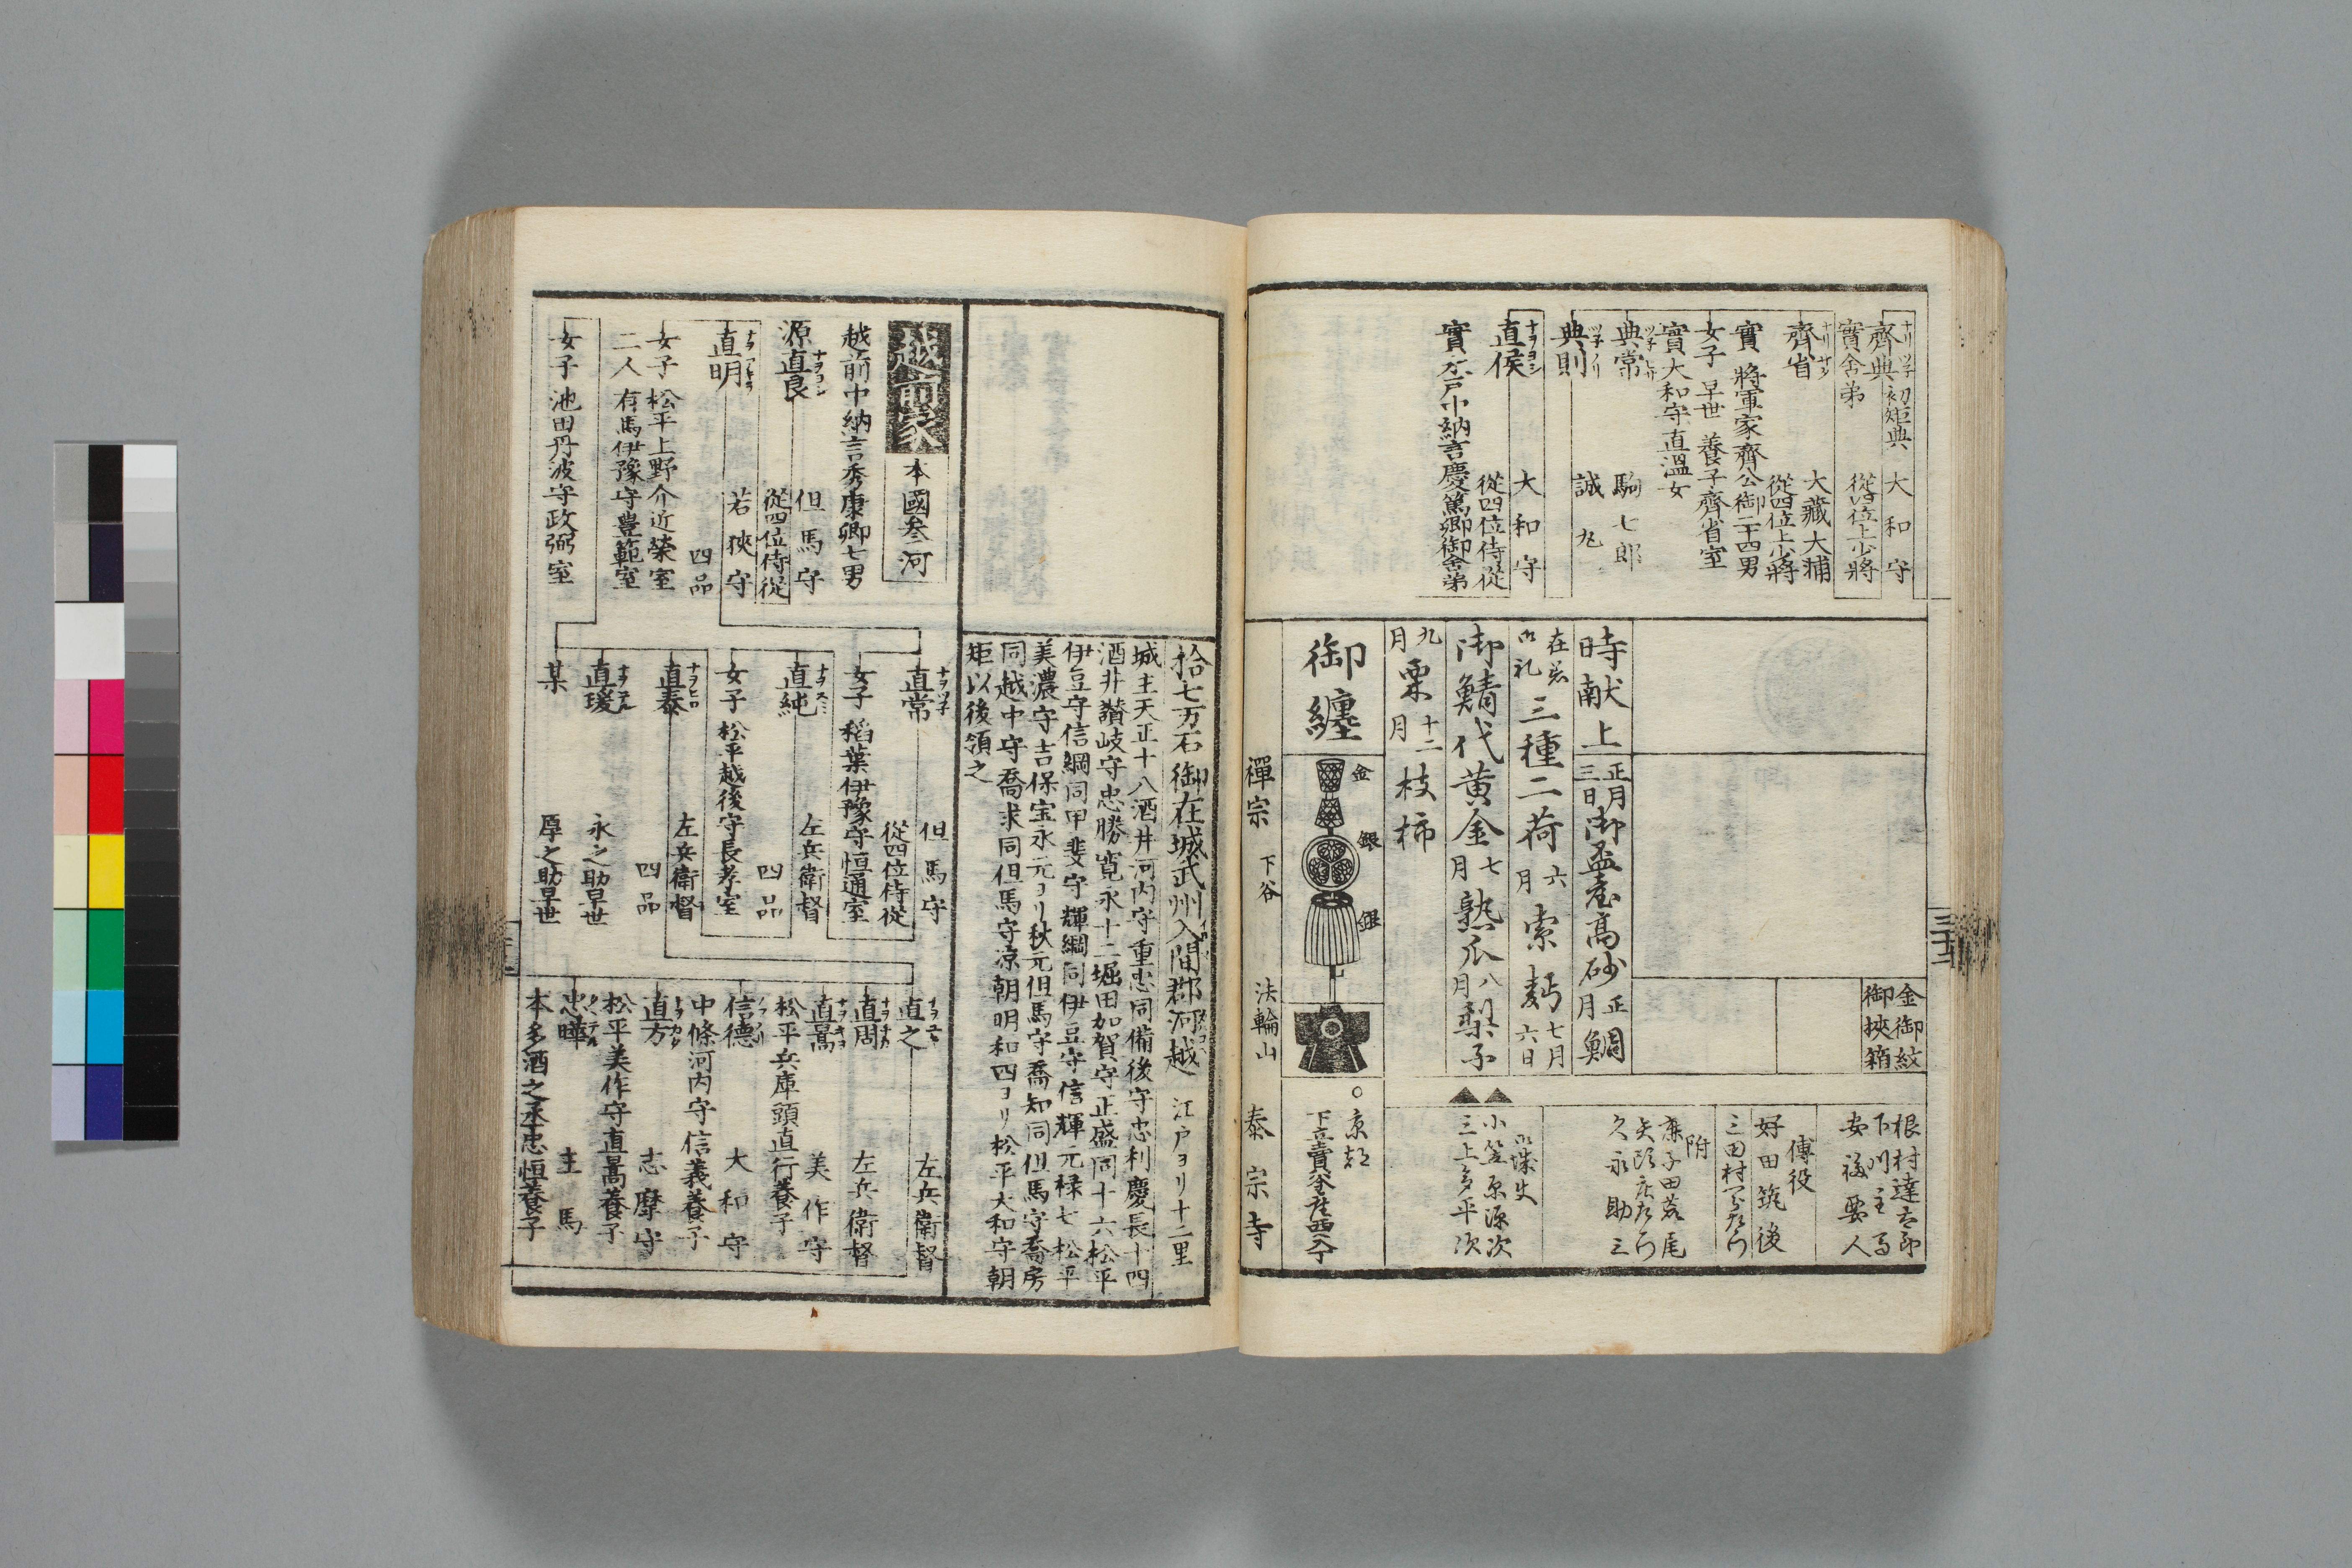 齊典 初矩典 大和守
實舍弟 從四位上少將
齊省 大藏大輔
從四位上少將
實 將軍家齊公御二十四男
女子 早世 養子齊省室
實大和守直溫女
典常 駒七郎
典則 誠丸
直侯 大和守
從四位侍從
實水戸中納言慶篤卿御舍弟
金御紋
御挾箱
時献上 正月三日 御盃臺高砂 正月 鯛
在着御礼 三種二荷 六月 索麪 七月六日
御鯖代黄金 七月 熟瓜 八月 梨子
九月 栗 十二月 枝柿
御纏
金
銀
銀
禪宗 下谷 法輪山 泰宗寺
根村達太郎
下川主馬
安福要人
傅役
好田筑後
附
久永助三
小笠原源次
三上多平次
○京都
三十二
拾七万石 御在城武州入間郡河越 江戸ヨリ十三里
城主天正十八酒井河内守重忠同備後守忠利慶長十四
酒井讃岐守忠勝寛永十二堀田加賀守正盛同十六松平
伊豆守信綱同甲斐守輝綱同伊豆守信輝元禄七松平
美濃守吉保宝永元ヨリ秋元但馬守喬知同但馬守喬房
同越中守喬求同但馬守凉朝明和四ヨリ松平大和守朝
矩以後領之
越前家 本國叁河
越前中納言秀康卿七男
源直良 但馬守
從四位侍從
直明 若狹守
四品
女子 松平上野介近榮室
二人 有馬伊豫守豊範室
女子 池田丹波守政弼室
直常 但馬守
從四位侍從
女子 稻葉伊豫守恒通室
直純 左兵衛督
四品
女子 松平越後守長孝室
直泰 左兵衛督
四品
直瑗 永之助早世
某 厚之助早世
直之 左兵衛督
直周 左兵衛督
直高 美作守
松平兵庫頭直行養子
信德 大和守
中條河内守信義養子
直方 志摩守
松平美作守直高養子
忠曄 主馬
本多酒之丞忠恒養子